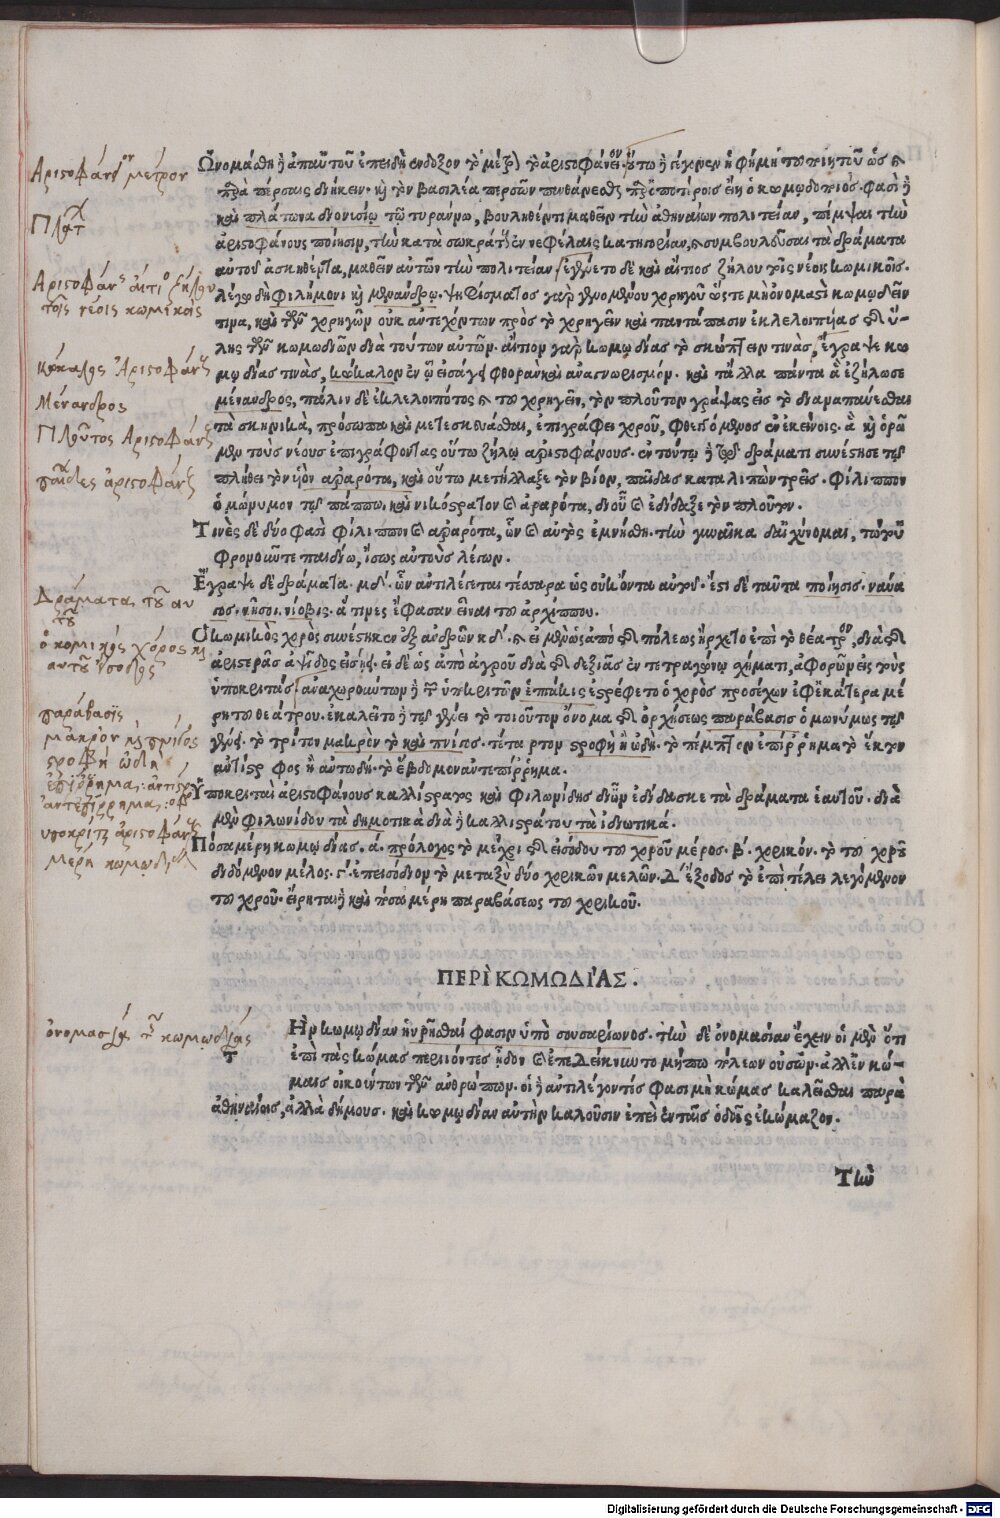 Ὠνομάσθη δὲ ἀπ' αὐτοῦ ἐπειδὴ ἔνδοξον τὸ μέτρον τὸ ἀριστοφάνειον. οὕτω δὲ γέγονεν ἡ φήμη τοῦ ποιητοῦ ὡς καὶ
παρὰ πέρσαις διήκειν. καὶ τὸν βασιλέα περσῶν πυθάνεσθαι παρ' ὁποτέροις εἴη ὁ κωμῳδοποιός. φασὶ δὲ
καὶ πλάτωνα διονυσίῳ τῷ τυράννῳ, βουληθέντι μαθεῖν τὴν ἀθηναίων πολιτείαν, πέμψαι τὴν
ἀριστοφάνους ποίησιν, τὴν κατὰ σωκράτους ἐν νεφέλαις κατηγορίαν, καὶ συμβουλεῦσαι τὰ δράματα
αὐτοῦ ἀσκηθέντα, μαθεῖν αὐτῶν τὴν πολιτείαν. ἐγένετο δὲ καὶ αἴτιος ζήλου τοῖς νέοις κωμικοῖς.
λέγω δὴ φιλήμονι καὶ μενάνδρῳ. ψηφίσματος γὰρ γενομένου χορηγοῦ ὥστε μὴ ὀνομαστὶ κωμῳδεῖν
τινα, καὶ τῶν χορηγῶν οὐκ ἀντεχόντων πρὸς τὸ χορηγεῖν καὶ παντάπασιν ἐκλελοιπυίας τῆς ὕ-
λης τῶν κωμωδιῶν διὰ τούτων αὐτῶν. αἴτιον γὰρ κωμῳδίας τὸ σκώπτειν τινὰς, ἔγραψε κω
μῳδίας τινὰς, κώκαλον ἐν ᾧ εἰσάγει φθορὰν καὶ ἀναγνωρισμόν. καὶ τἄλλα πάντα ἃ ἐζήλωσε
μένανδρος, πάλιν δὲ ἐκλελοιπότος καὶ τοῦ χορηγεῖν, τὸν πλοῦτον γράψας εἰς τὸ διαναπαύεσθαι
τὰ σκηνικὰ, πρόσωπα καὶ μετεσκευάσθαι, ἐπιγράφει χοροῦ, φθεγγόμενος ἐν ἐκείνοις. ἃ καὶ ὁρῶ
μεν τοὺς νέους ἐπιγράφοντας οὕτω ζήλῳ ἀριστοφάνους. ἐν τούτῳ δὲ τῷ δράματι συνέστησε τῷ
πλήθει τὸν υἱὸν ἀραρότα, καὶ οὕτω μετήλλαξε τὸν βίον, παῖδας καταλιπὼν τρεῖς. φίλιππον
ὁμώνυμον τῷ πάππῳ. καὶ νικόστρατον καὶ ἀραρότα, δι' οὗ καὶ ἐδίδαξε τὸν πλοῦτον.
Τινὲς δὲ δύο φασὶ φίλιππον καὶ ἀραρότα, ὧν καὶ αὐτὸς ἐμνήσθη. τὴν γυναῖκα δ' αἰσχύνομαι, τώ τ' οὐ
φρονοῦντε παιδίω, ἴσως αὐτοὺς λέγων.
Ἔγραψε δὲ δράματα. μδ'. ὧν ἀντιλέγεται τέσσαρα ὡς οὐκ ὄντα αὐτοῦ. ἔστι δὲ ταῦτα ποίησις. ναύα
γος. νῆσοι. νίοβις. ἅ τινες ἔφασαν εἶναι τοῦ ἀρχίππου.
Ὁ κωμικὸς χορὸς συνέστηκεν ἐξ ἀνδρῶν κδ'. καὶ εἰ μὲν ὡς ἀπὸ τῆς πόλεως ἤρχετο ἐπὶ τὸ θέατρον, διὰ τῆς
ἀριστερᾶς ἁψῖδος εἰσῄει. εἰ δὲ ὡς ἀπὸ ἀγροῦ διὰ τῆς δεξιᾶς ἐν τετραγώνῳ σχήματι, ἀφορῶν εἰς τοὺς
ὑποκριτάς. ἀναχωρούντων δὲ τῶν ὑποκριτῶν ἑπτάκις ἐστρέφετο ὁ χορὸς προσέχων ἐφ' ἑκάτερα μέ
ρη τοῦ θεάτρου. ἐκαλεῖτο δὲ τῷ γένει τὸ τοιοῦτον ὄνομα τῆς ὀρχήσεως παράβασις ὁμωνύμως τῷ
γένει. τὸ τρίτον μακρὸν τὸ καὶ πνῖγος. τέταρτον στροφὴ ἢ ᾠδή. τὸ πέμπτον ἐπίῤῥημα τὸ ἕκτον
ἀντίστροφος ἢ ἀντωδή. τὸ ἕβδομον ἀντεπίῤῥημα.
Ὑποκριταὶ ἀριστοφάνους καλλίστρατος καὶ φιλωνίδης δι' ὧν ἐδίδασκε τὰ δράματα ἑαυτοῦ. διὰ
μὲν φιλωνίδου τὰ δημοτικὰ διὰ δὲ καλλιστράτου τὰ ἰδιωτικά.
Πόσα μέρη κωμῳδίας. ά. πρόλογος τὸ μέχρι τῆς εἰσόδου τοῦ χοροῦ μέρος. β'. χορικόν. τὸ τοῦ χοροῦ
διδόμενον μέλος. γ'. ἐπεισόδιον τὸ μεταξὺ δύο χορικῶν μελῶν. Δ' ἔξοδος τὸ ἐπὶ τέλει λεγόμενον
τοῦ χοροῦ. εἴρηται δὲ καὶ πόσα μέρη παραβάσεως τοῦ χορικοῦ.
ΠΕΡῚ ΚΩΜΩΔΊΑΣ.
Τὴν κωμῳδίαν ηὑρῆσθαί φασιν ὑπὸ σουσαρίωνος. τὴν δὲ ὀνομασίαν ἔχειν οἱ μὲν ὅτι
ἐπὶ τὰς κώμας περιιόντες ᾖδον καὶ ἐπεδείκνυντο μήπω πόλεων οὐσῶν. ἀλλ' ἐν κώ-
μαις οἰκούντων τῶν ἀνθρώπων. οἱ δὲ ἀντιλέγοντές φασι μὴ κώμας καλεῖσθαι παρὰ
ἀθηναίοις, ἀλλὰ δήμους. καὶ κωμῳδίαν αὐτὴν καλοῦσιν ἐπεὶ ἐν ταῖς ὁδοῖς ἐκώμαζον.
Τὴν
Ἀριστοφάνειον μέτρον
Πλάτ
Ἀριστοφάνης αἴτιος ζήλου
τοῖς νέοις κωμικοῖς
κώκαλος Ἀριστοφάνους
Μένανδρος
Πλοῦτος Ἀριστοφάνους
παῖδες ἀριστοφάνους
Δράματα τοῦ αὐ
τοῦ
ὁ κωμικὸς χόρος καὶ
παράβασις
μακρὸν καὶ πνίγος
στροφὴ ᾠδὴ
ἐπίρρημα: ἀντίστρ
ἀντεπίρρημα:
ὑποκριταὶ ἀριστοφάνους
μέρη κωμῳδίας
ὀνομασία τῆς κωμῳδίας
Digitalisierung gefördert durch die Deutsche Forschungsgemeinschaft - DFG